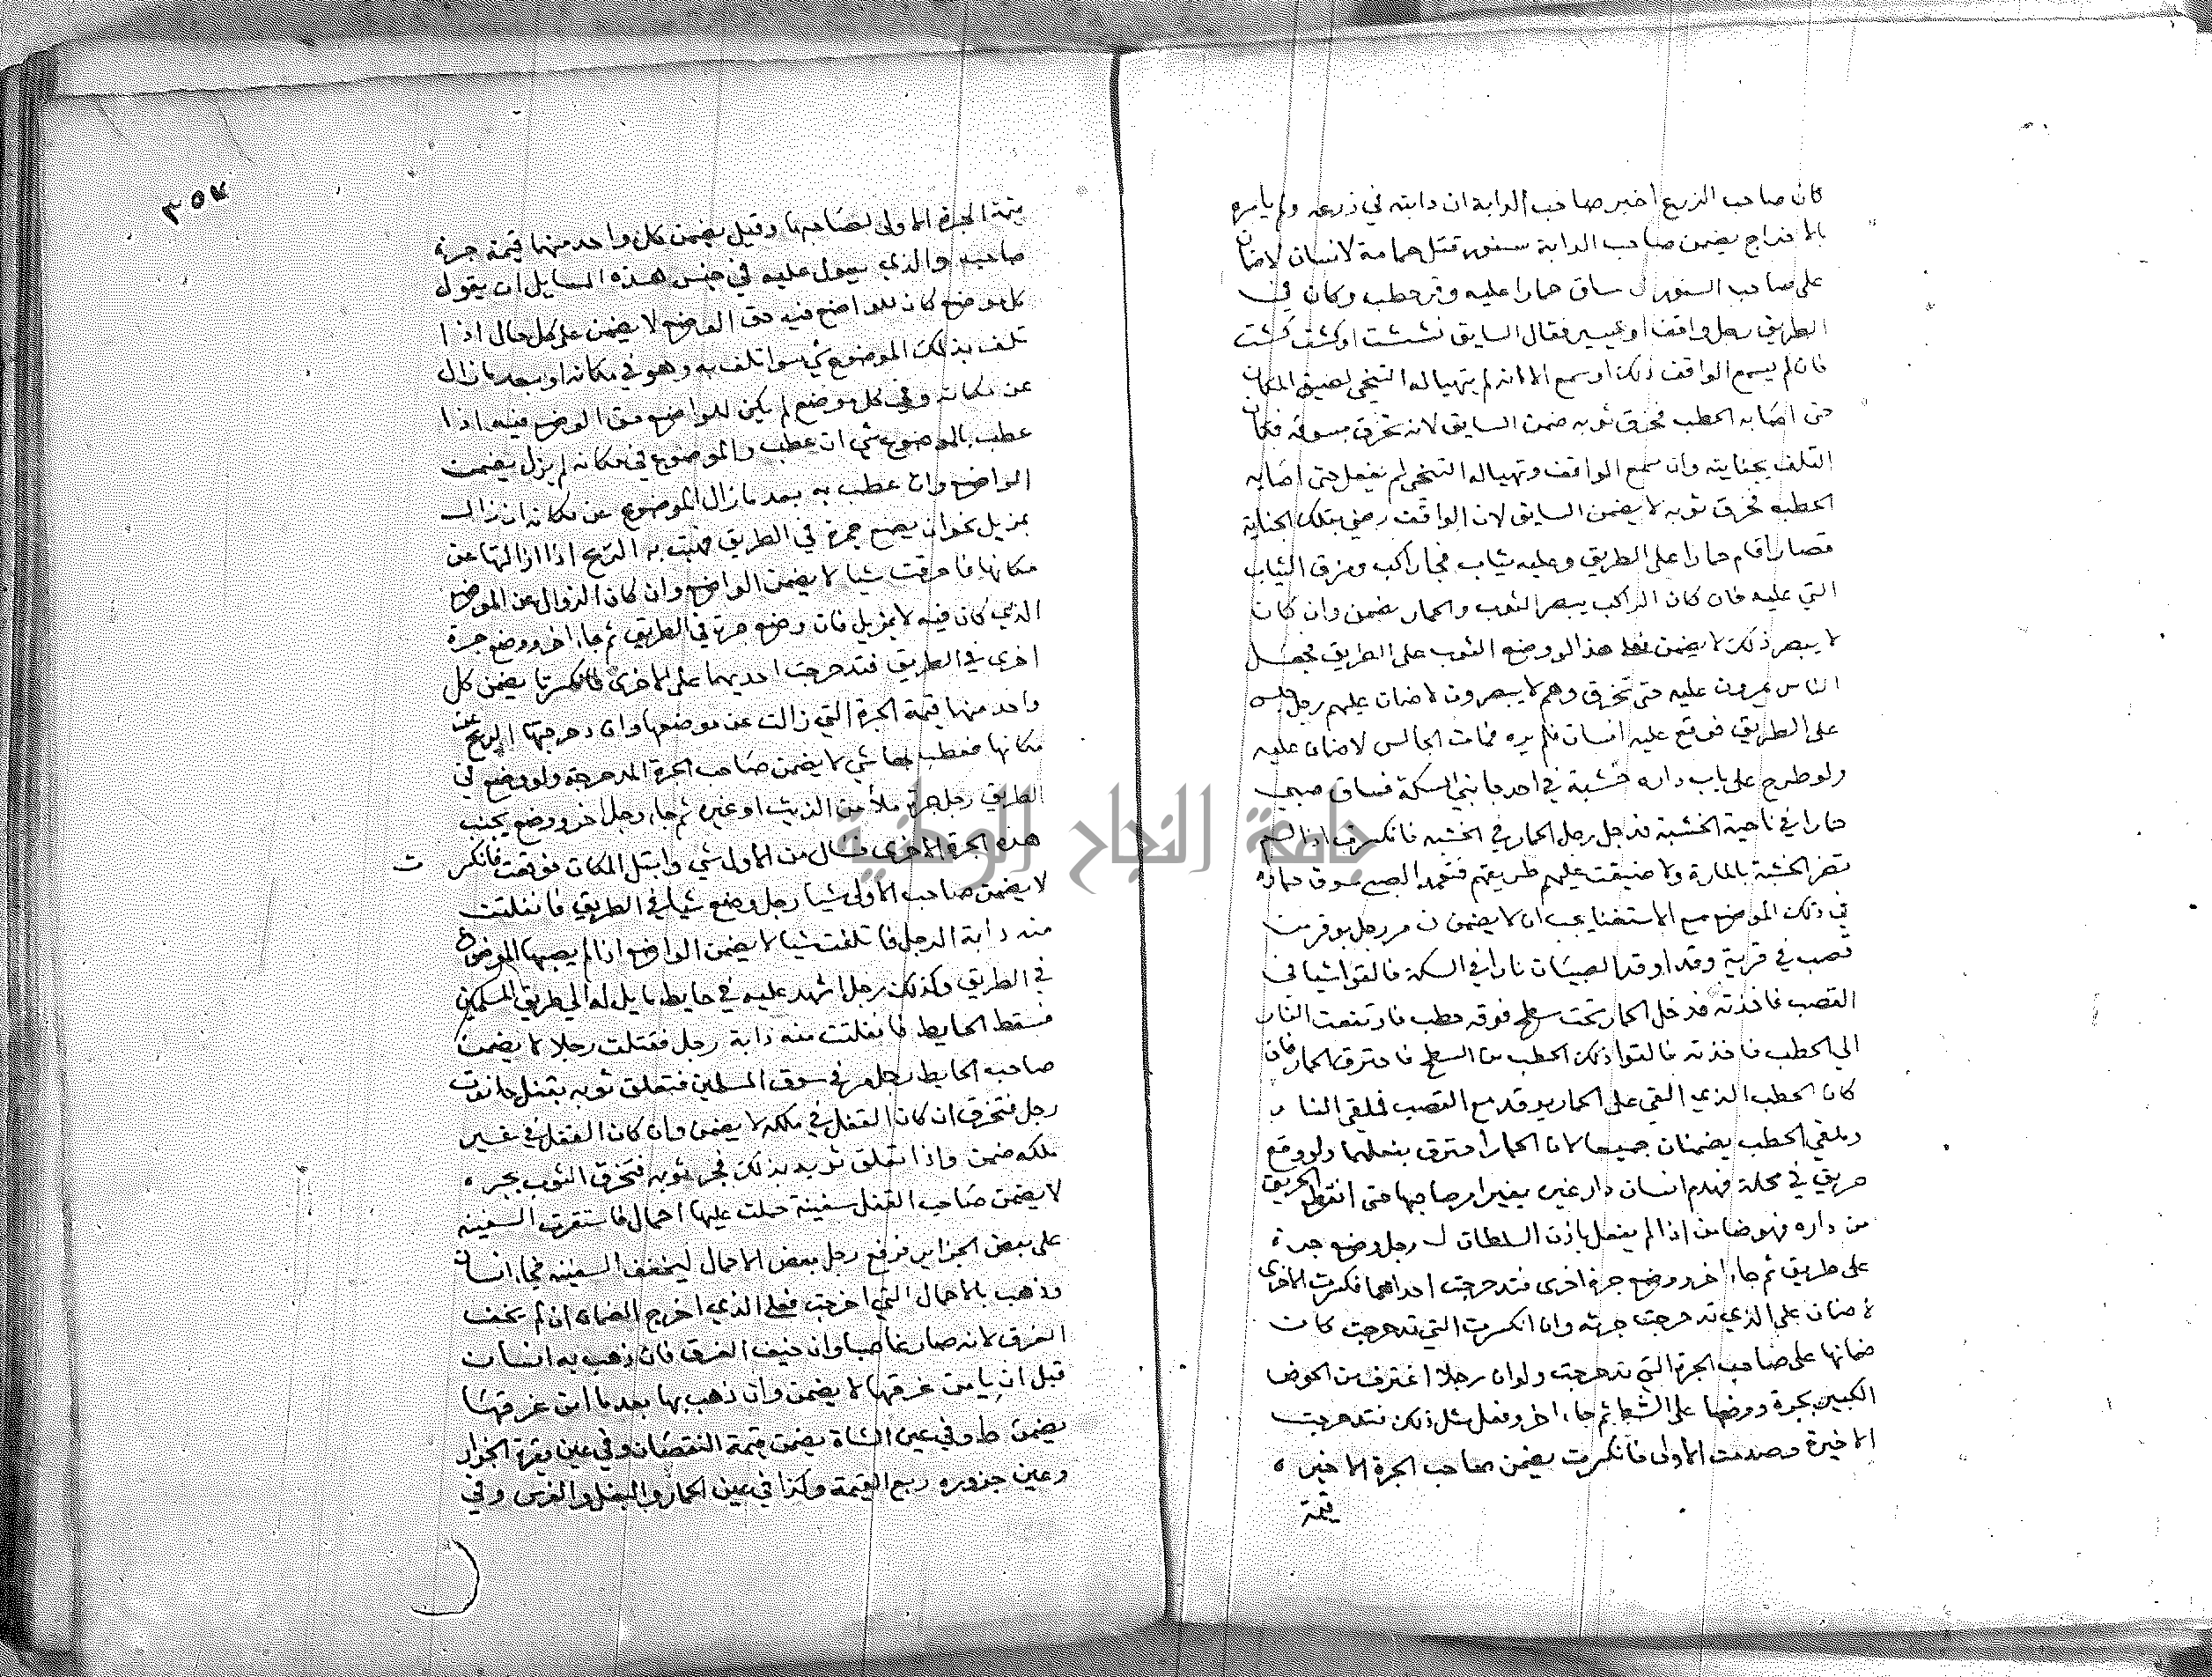 كان صاحب الزرع اخبر صاحب الدابة ان دابته في زرعه ولم يامره
بالاخراج يضمن صاحب الدابة سنور قتل حمامة لانسان لا ضمان
على صاحب السنور ل ساق حمارا عليه وقر حطب وكان في
الطريق رجل واقف او يسير فقال السايق كشت كشت
فان لم يسمع الواقف ذلك او سمع الا انه لم يتهيا له التنحي لضيق المكان
حتى اصابه الحطب فخرق ثوبه ضمن السايق لانه تخرق بسوقه فكان
التلف بجنايته وان سمع الواقف وتهيا له التنحي لم يفعل حتى اصابه
الحطب فخرق ثوبه لا يضمن السايق لان الواقف رضي بتلك الجناية
قصار اقام حمارا على الطريق وعليه ثياب فجا راكب ومزق الثياب
التي عليه فان كان الراكب يبصر الثوب والحمار يضمن وان كان
لا يبصر ذلك لا يضمن فعلى هذا لو وضع الثوب على الطريق فجعل
الناس يمرون عليه حتى تخرق وهم لا يبصرون لا ضمان عليهم رجل جلس
على الطريق فوقع عليه انسان فلم يره فمات الجالس لا ضمان عليه
ولو طرح على باب داره خشبة في احد جانبي السكة فساق صبي
حمارا في ناحية الخشبة فدخل رجل الحمار في الخشبة فانكسرت اذا لم
تضر الخشبة بالمارة ولا ضيقت عليهم طريقهم فتعمد الصبي سوق حماره
في ذلك الموضع مع الاستغنا يجب ان لا يضمن ن مر رجل بوقر من
قصب في قرية وقد اوقد الصبيان نارا في السكة فالقوا شيا في
القصب فاخذته فدخل الحمار تحت سطح فوقه حطب فارتفعت النار
الى الحطب فاخذته فالقوا ذلك الحطب من السطح فاحترق الحمار فان
كان الحطب الذي القي على الحمار يوقد مع القصب فملقي النار
وملقي الحطب يضمنان جميعا لان الحمار احترق بفعلهما ولو وقع
حريق في محلة فهدم انسان دار غيره بغير امر صاحبها حتى انقطع الحريق
من داره فهو ضامن اذا لم يفعل باذن السلطان ل رجل وضع جرة
على طريق ثم جاء اخر ووضع جرة اخرى فتدحرجت احداهما فكسرت الاخرى
لا ضمان على الذي تدحرجت جرته وان انكسرت التي تدحرجت كان
ضمانها على صاحب الجرة التي تدحرجت ولو ان رجلا اغترف من الحوض
الكبير بجرة ووضعها على الشط ثم جاء اخر وفعل مثل ذلك فتدحرجت
الاخيرة وصدمت الاولى فانكسرت يضمن صاحب الجرة الاخيره
قيمة
٣٥٧
قيمة الجرة الاولى لصاحبها وقيل يضمن كل واحد منهما قيمة جرة
صاحبه والذي يعول عليه في جنس هذه المسايل ان يقول
كل موضع كان للواضع فيه حق الوضع لا يضمن على كل حال اذا
تلف بذلك الموضوع شي سوا تلف به وهو في مكانه او بعد ما زال
عن مكانه وفي كل موضع لم يكن للواضع حق الوضع فيه اذا
عطب بالموضوع شي ان عطب والموضوع في مكانه لم يزل يضمن
الواضع وان عطب به بعد ما زال الموضوع عن مكانه ان زال
بمزيل نحو ان يضع جمرة في الطريق فهبت به الريح اذا ازالتها عن
مكانها فاحرقت شيا لا يضمن الواضع وان كان الزوال عن الموضع
الذي كان فيه لا بمزيل فان وضع جرة في الطريق ثم جاء اخر ووضع جرة
اخرى في الطريق فتدحرجت احديهما على الاخرى فانكسرتا يضمن كل
واحد منهما قيمة الجرة التي زالت عن موضعها وان دحرجتها الريح عن
مكانها فعطب بها شي لا يضمن صاحب الجرة المدحرجة ولو وضع في
الطريق رجل جرة ملأ من الزيت او غيره ثم جاء رجل اخر ووضع بجنب
هذه الجرة الاخرى فسال من الاولى شي وابتل المكان فوقعت فانكسر ت
لا يضمن صاحب الاولى شيا رجل وضع شيا في الطريق فانفلتت
منه دابة الرجل فاتلفت شيا لا يضمن الواضع اذا لم يصبها الموضوع
في الطريق وكذلك رجل اشهد عليه في حايط مايل له الى طريق المسلمين
فسقط الحايط فانفلتت منه دابة رجل فقتلت رجلا لا يضمن
صاحب الحايط رجل مر في سوق المسلمين فتعلق ثوبه بقفل حانوت
رجل فتخرق ان كان القفل في ملكه لا يضمن وان كان القفل في غير
ملكه ضمن واذا تعلق ثوبه بذلك فجر ثوبه فتخرق الثوب بجره
لا يضمن صاحب القفل سفينة حملت عليها احمال فاستقرت السفينه
على بعض الجزاير فرفع رجل بعض الاحمال ليخفف السفينه فجاء انسان
وذهب بالاحمال التي اخرجت فعلى الذي اخرج الضمان ان لم يخف
الغرق لانه صار غاصبا وان خيف الغرق فان ذهب به انسان
قبل ان يامن غرقها لا يضمن وان ذهب بها بعد ما امن غرقها
يضمن ط وفي عين الشاة يضمن قيمة النقصان وفي عين بقرة الجزار
وعين جزوره ربع القيمة وكذا في عين الحمار والبغل والفرس وفي
جامعة النجاح الوطنية